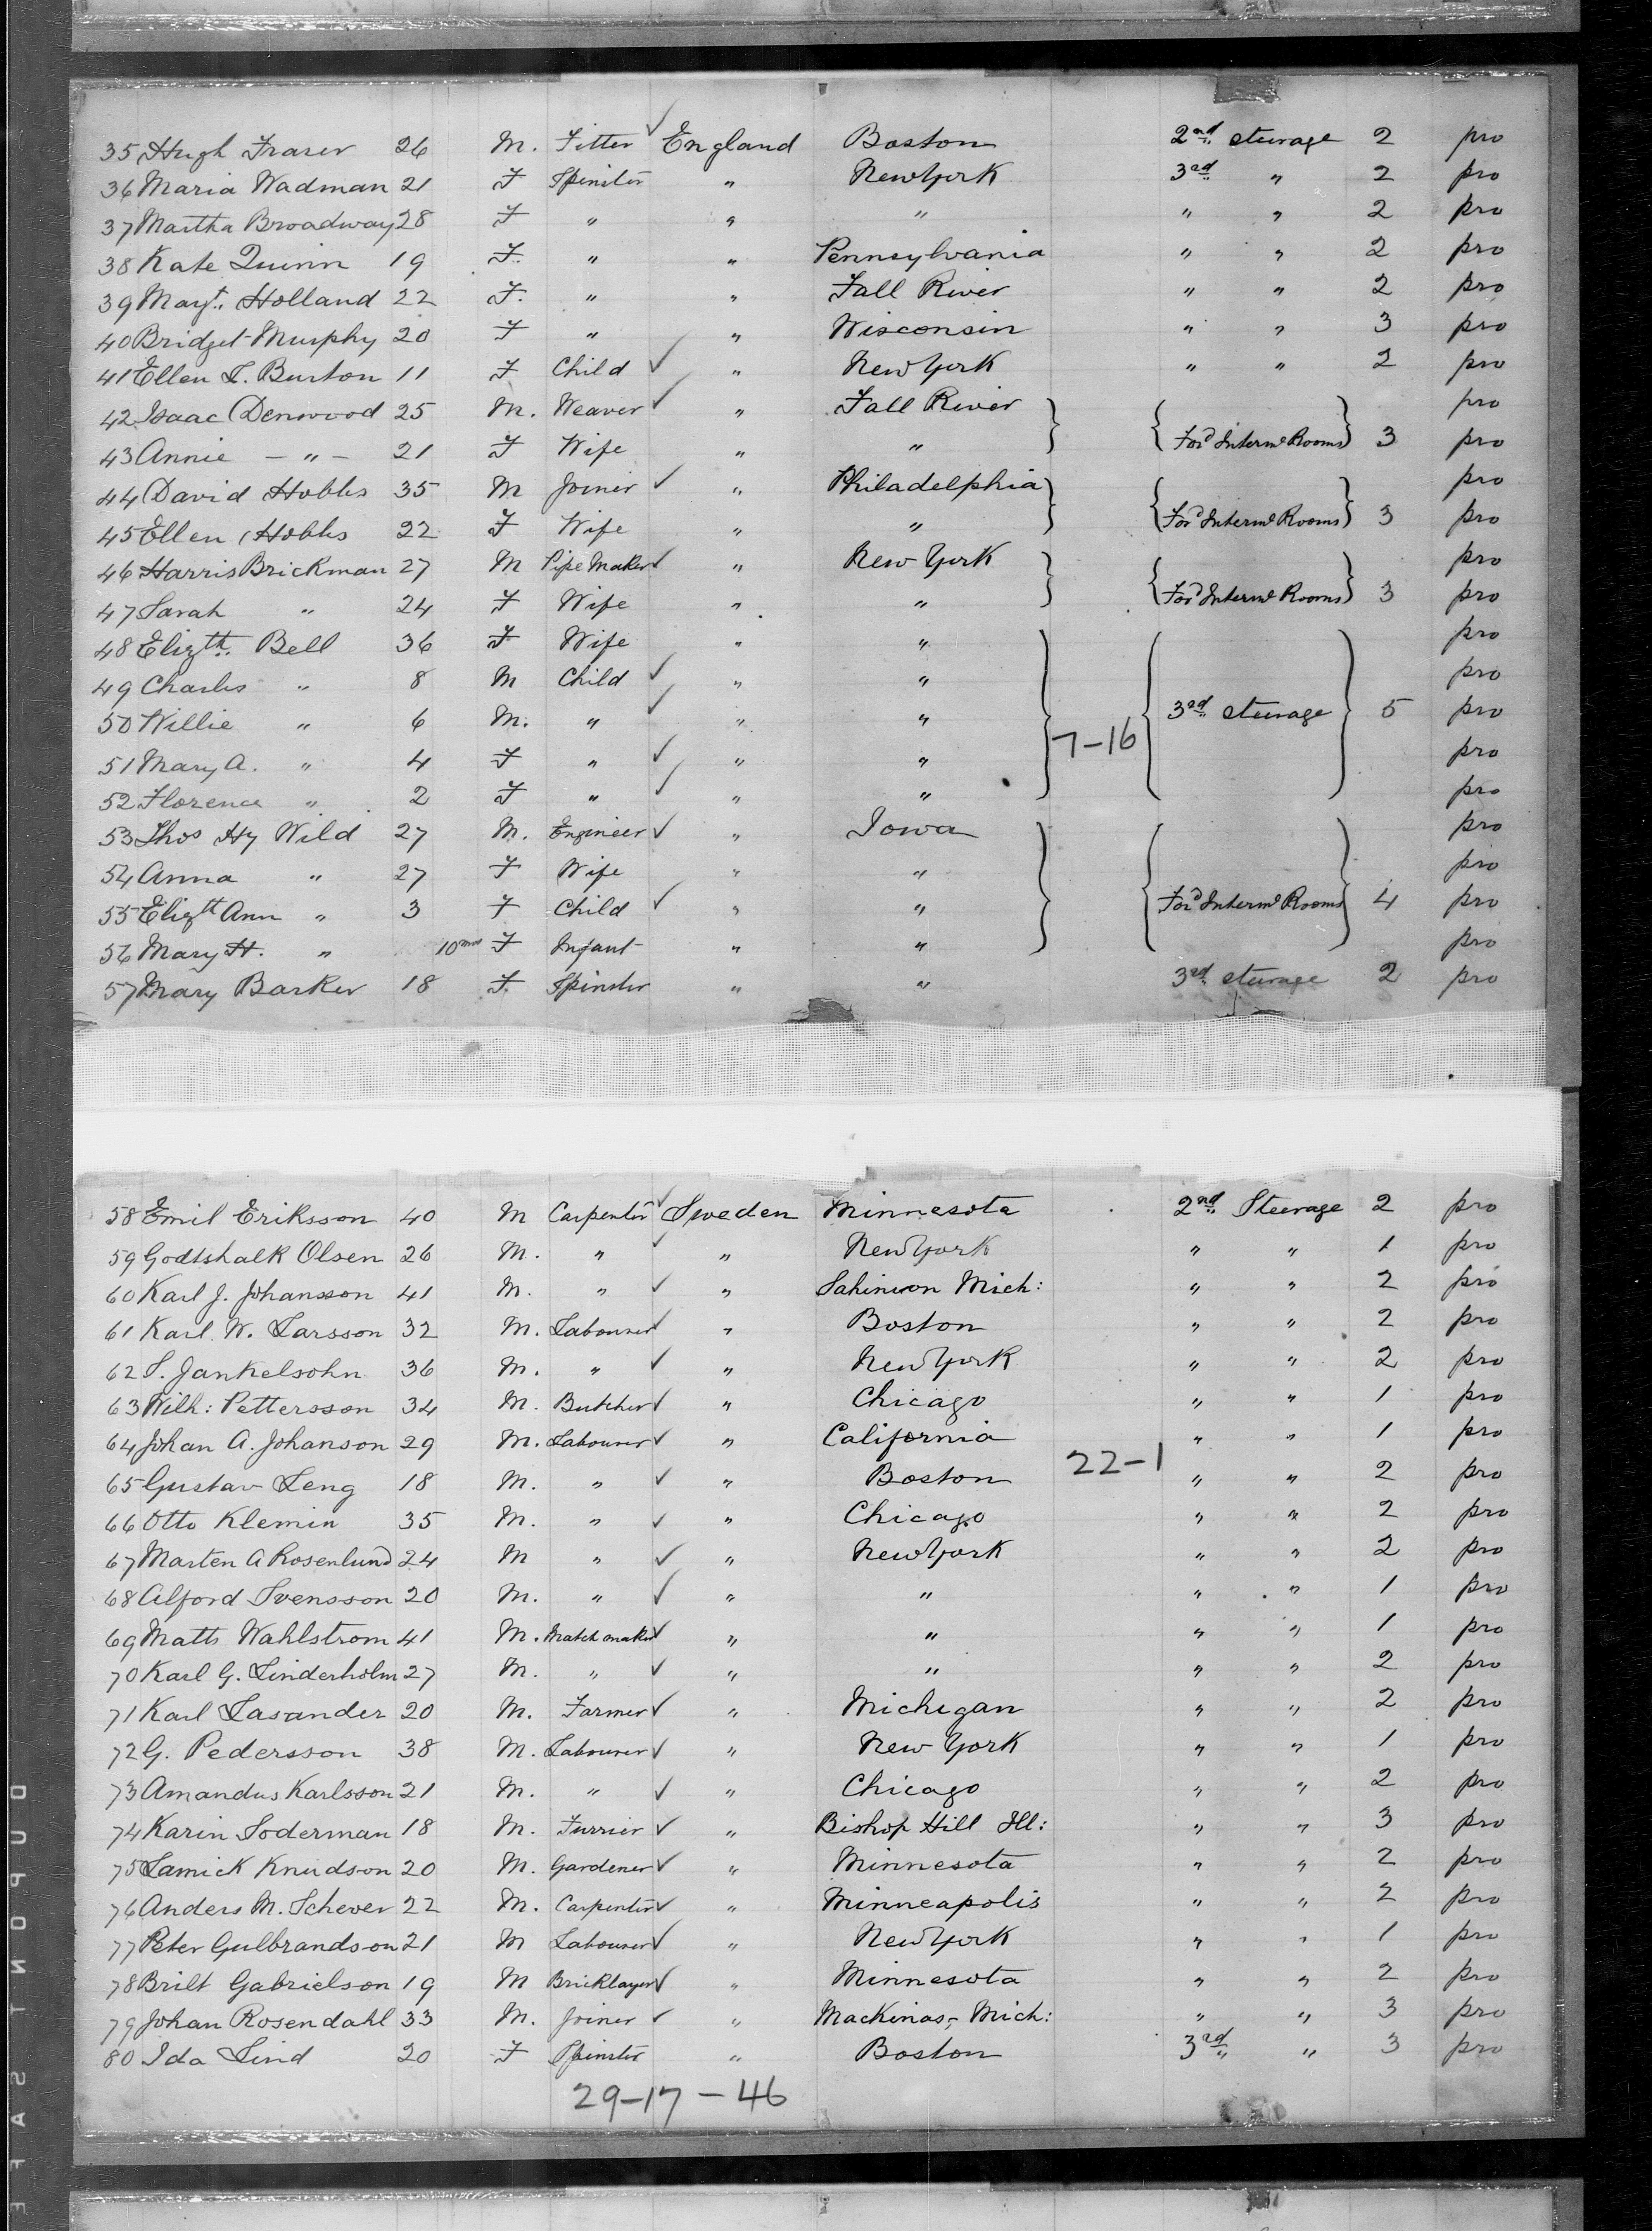 35 Hugh Fraser 26 M. Fitter England Boston 2nd steerage 2 pro
36 Maria Wadman 21 F Spinster " New York 3rd " 2 pro
37 Martha Broadway 28 F " " " " " 2 pro
38 Kate Quinn 19 F. " " Pennsylvania " " 2 pro
39 Margt. Holland 22 F. " " Fall River " " 2 pro
40 Bridget Murphy 20 F " " Wisconsin " " 3 pro
41 Ellen L. Burton 11 F Child " New York " " 2 pro
42 Isaac Denwood 25 M. Weaver " Fall River pro
43 Annie - " - 21 F Wife " " For'd Interm'e Rooms 3 pro
44 David Hobbs 35 M Joiner " Philadelphia pro
45 Ellen Hobbs 22 F Wife " " For'd Interm'e Rooms 3 pro
46 Harris Brickman 27 M Pipe Maker " New York pro
47 Sarah " 24 F Wife " " For'd Interm'e Rooms 3 pro
48 Elizth. Bell 36 F Wife " " pro
49 Charles " 8 M Child " " pro
50 Willie " 6 M. " " " 3rd steerage 5 pro
7-16
51 Mary A. " 4 F " " " pro
52 Florence " 2 F " " " pro
53 Thos Hy Wild 27 M. Engineer " Iowa pro
54 Anna " 27 F Wife " " pro
55 Elizth Ann " 3 F Child " " For'd Interm'e Rooms 4 pro
56 Mary H. " 10 mos F Infant " " pro
57 Mary Barker 18 F. Spinster " " 3rd steerage 2 pro
58 Emil Eriksson 40 M Carpenter Sweden Minnesota 2nd Steerage 2 pro
59 Godtshalk Olsen 26 M. " " New York " " 1 pro
60 Karl J. Johansson 41 M. " " Mich: " " 2 pro
61 Karl W. Larsson 32 M. Labourer " Boston " " 2 pro
62 S. Jankelsohn 36 M. " " New York " " 2 pro
63 Wilh: Pettersson 34 M. Butcher " Chicago " " 1 pro
64 Johan A. Johanson 29 M. Labourer " California " " 1 pro
22-1
65 Gustav Leng 18 M. " " Boston " " 2 pro
66 Otto Klemin 35 M. " " Chicago " " 2 pro
67 Marten A Rosenlund 24 M " " New York " " 2 pro
68 Alford Svensson 20 M. " " " " " 1 pro
69 Matts Wahlstrom 41 M. Match maker " " " " 1 pro
70 Karl G. Linderholm 27 M. " " " " " 2 pro
71 Karl Lasander 20 M. Farmer " Michigan " " 2 pro
72 G. Pedersson 38 M. Labourer " New York " " 1 pro
73 Amandus Karlsson 21 M. " " Chicago " " 2 pro
74 Karin Soderman 18 M. Furrier " Bishop Hill Ill: " " 3 pro
75 Lamick Knudson 20 M. Gardener " Minnesota " " 2 pro
76 Anders M. Schever 22 M. Carpenter " Minneapolis " " 2 pro
77 Peter Gulbrandson 21 M Labourer " New York " " 1 pro
78 Brilt Gabrielson 19 M Bricklayer " Minnesota " " 2 pro
79 Johan Rosendahl 33 M. Joiner " Mackinas, Mich: " " 3 pro
80 Ida Lind 20 F Spinster " Boston 3rd " " 3 pro
29-17-46